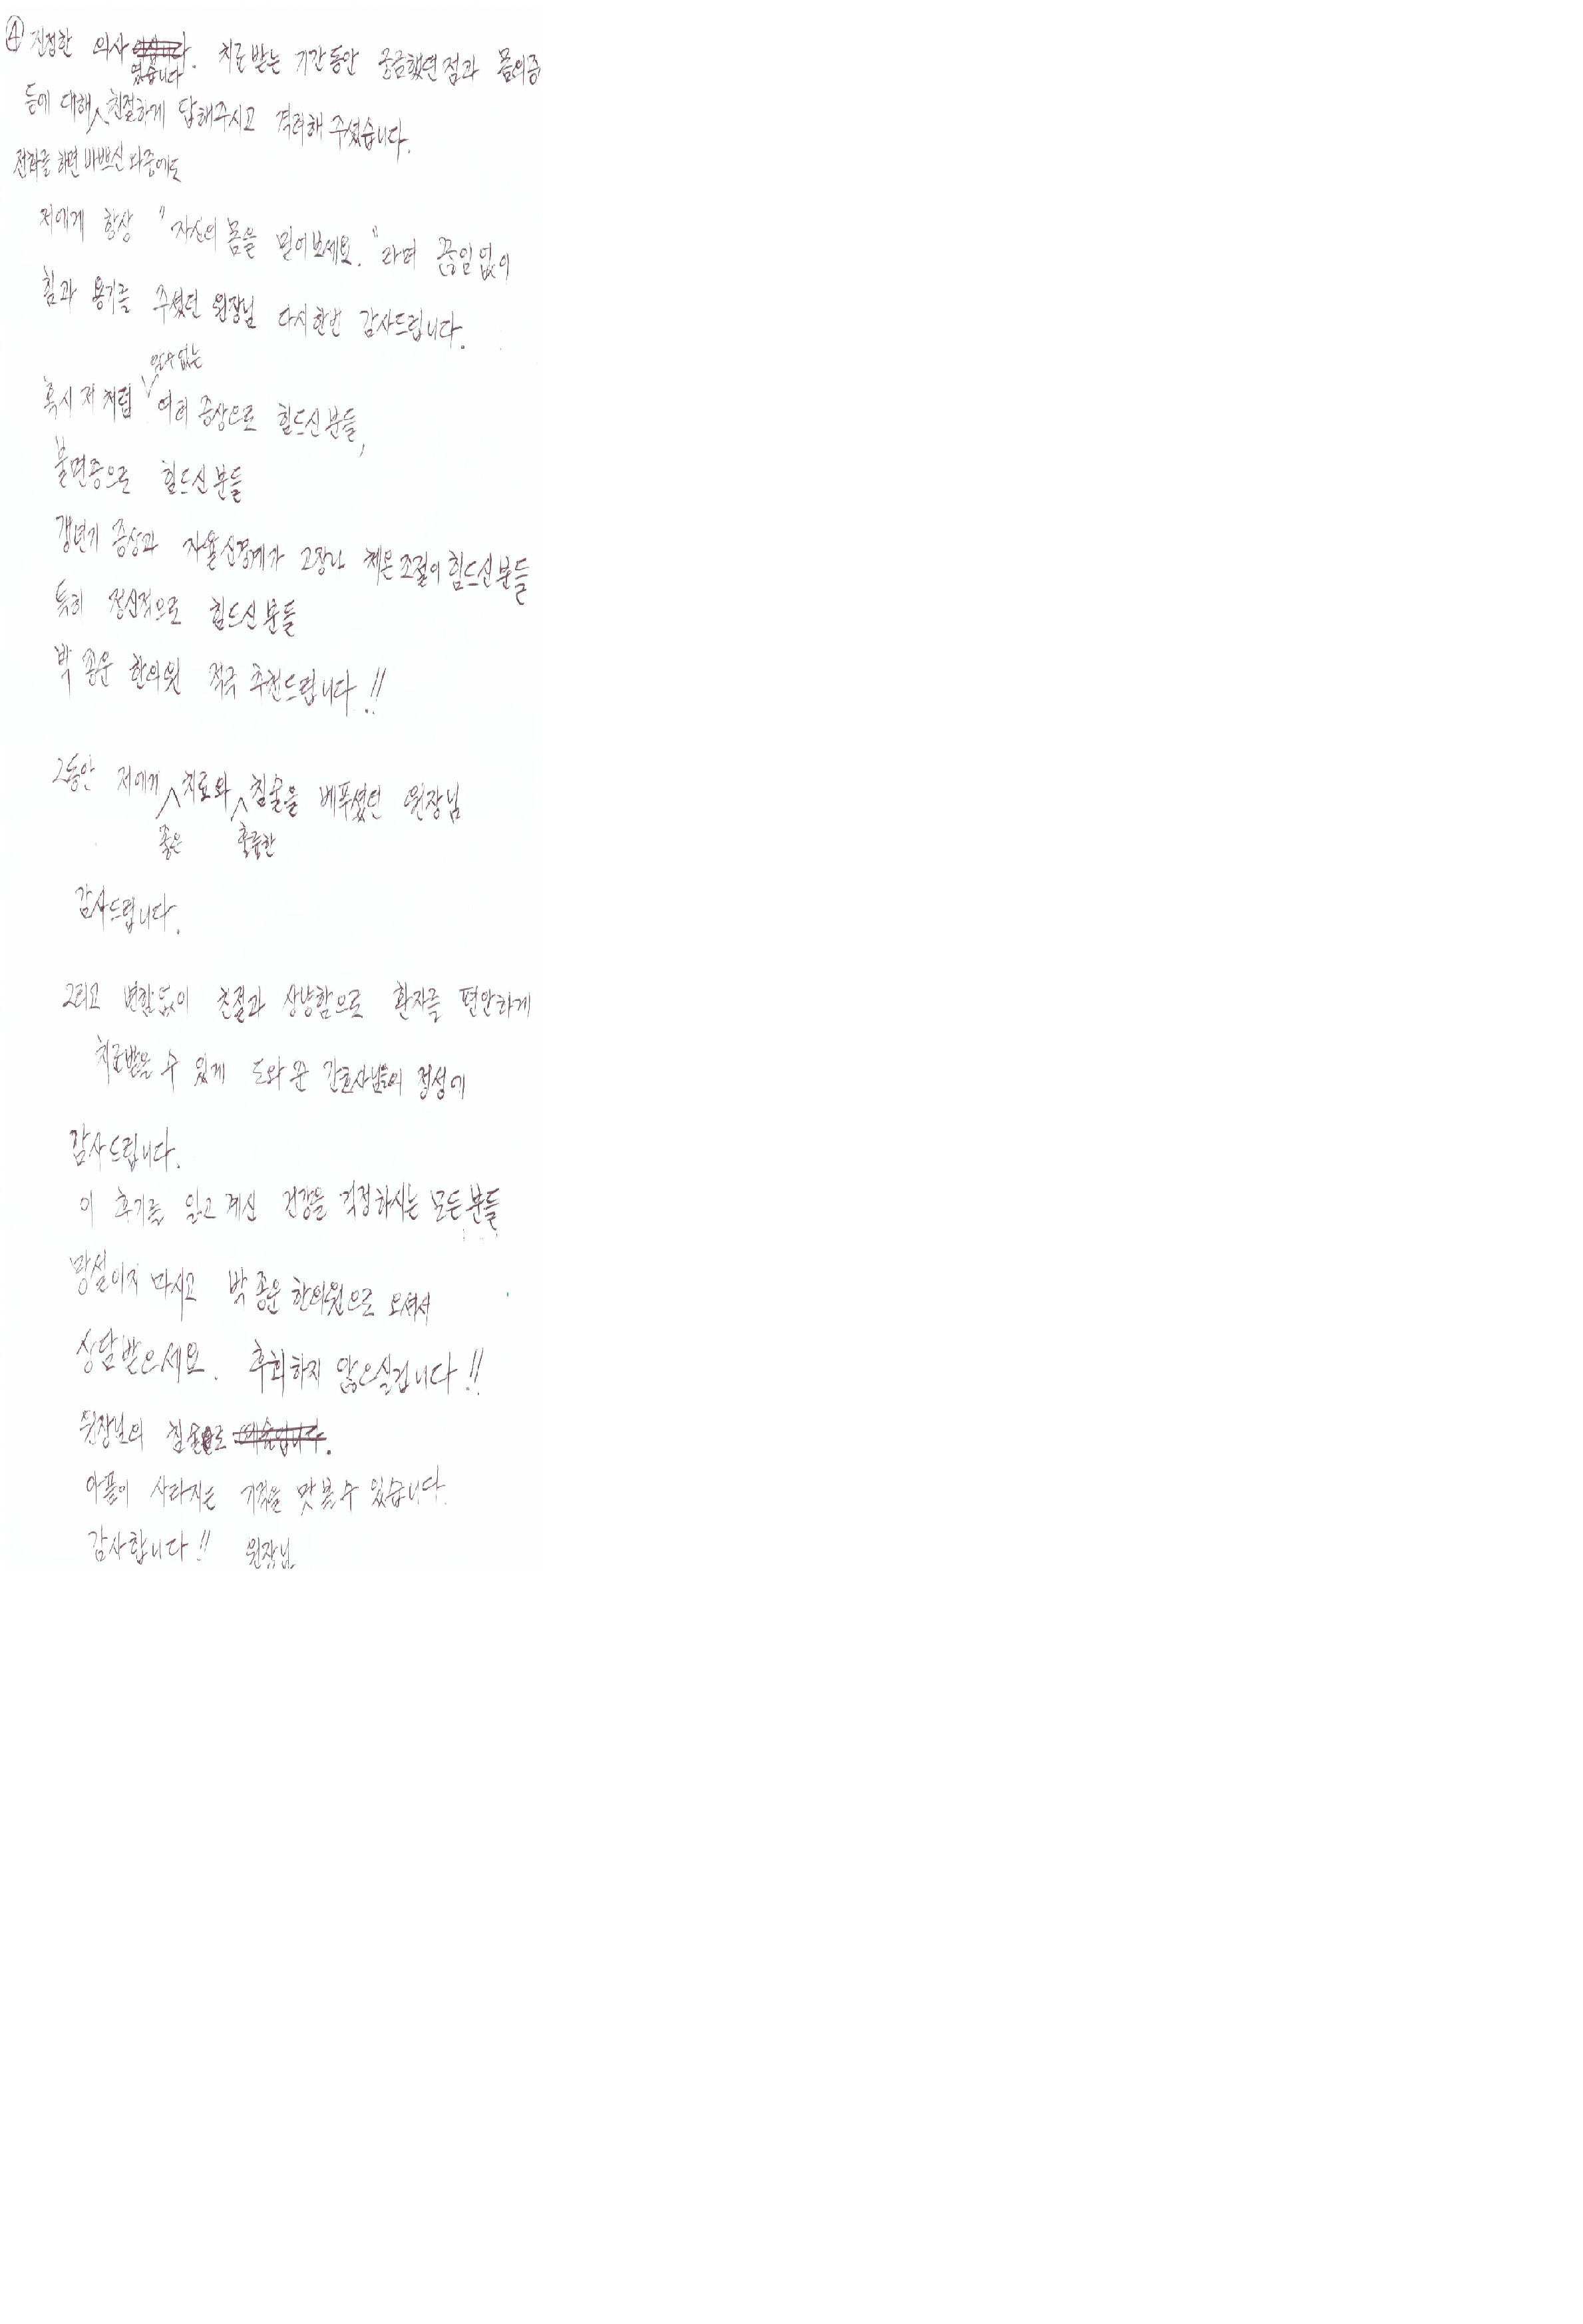 ④ 진정한 의사였습니다. 치료받는 기간동안 궁금했던 점과 몸의증
등에 대해 친절하게 답해주시고 격려해 주셨습니다.
전화를 하면 바쁘신 와중에도
저에게 항상 "자신의 몸을 믿어보세요."라며 끊임없이
힘과 용기를 주셨던 원장님 다시한번 감사드립니다.
알수없는
혹시 저 처럼 여러 증상으로 힘드신분들,
불면증으로 힘드신분들
갱년기 증상과 자율신경계가 고장나 체온조절이 힘드신분들
특히 정신적으로 힘드신분들
박종운 한의원 적극 추천드립니다!!
그동안 저에게 치료와 침술을 베푸셨던 원장님
좋은 훌륭한
감사드립니다.
그리고 변함없이 친절과 상냥함으로 환자를 편안하게
치료받을 수 있게 도와준 간호사님들의 정성에
감사드립니다.
이 후기를 읽고계신 건강을 걱정하시는 모든분들
망설이지 마시고 박종운 한의원으로 오셔서
상담받으세요. 후회하지 않으실겁니다!!
원장님의 침술로 예술입니다.
아픔이 사라지는 기적을 맛볼수 있습니다.
감사합니다!! 원장님